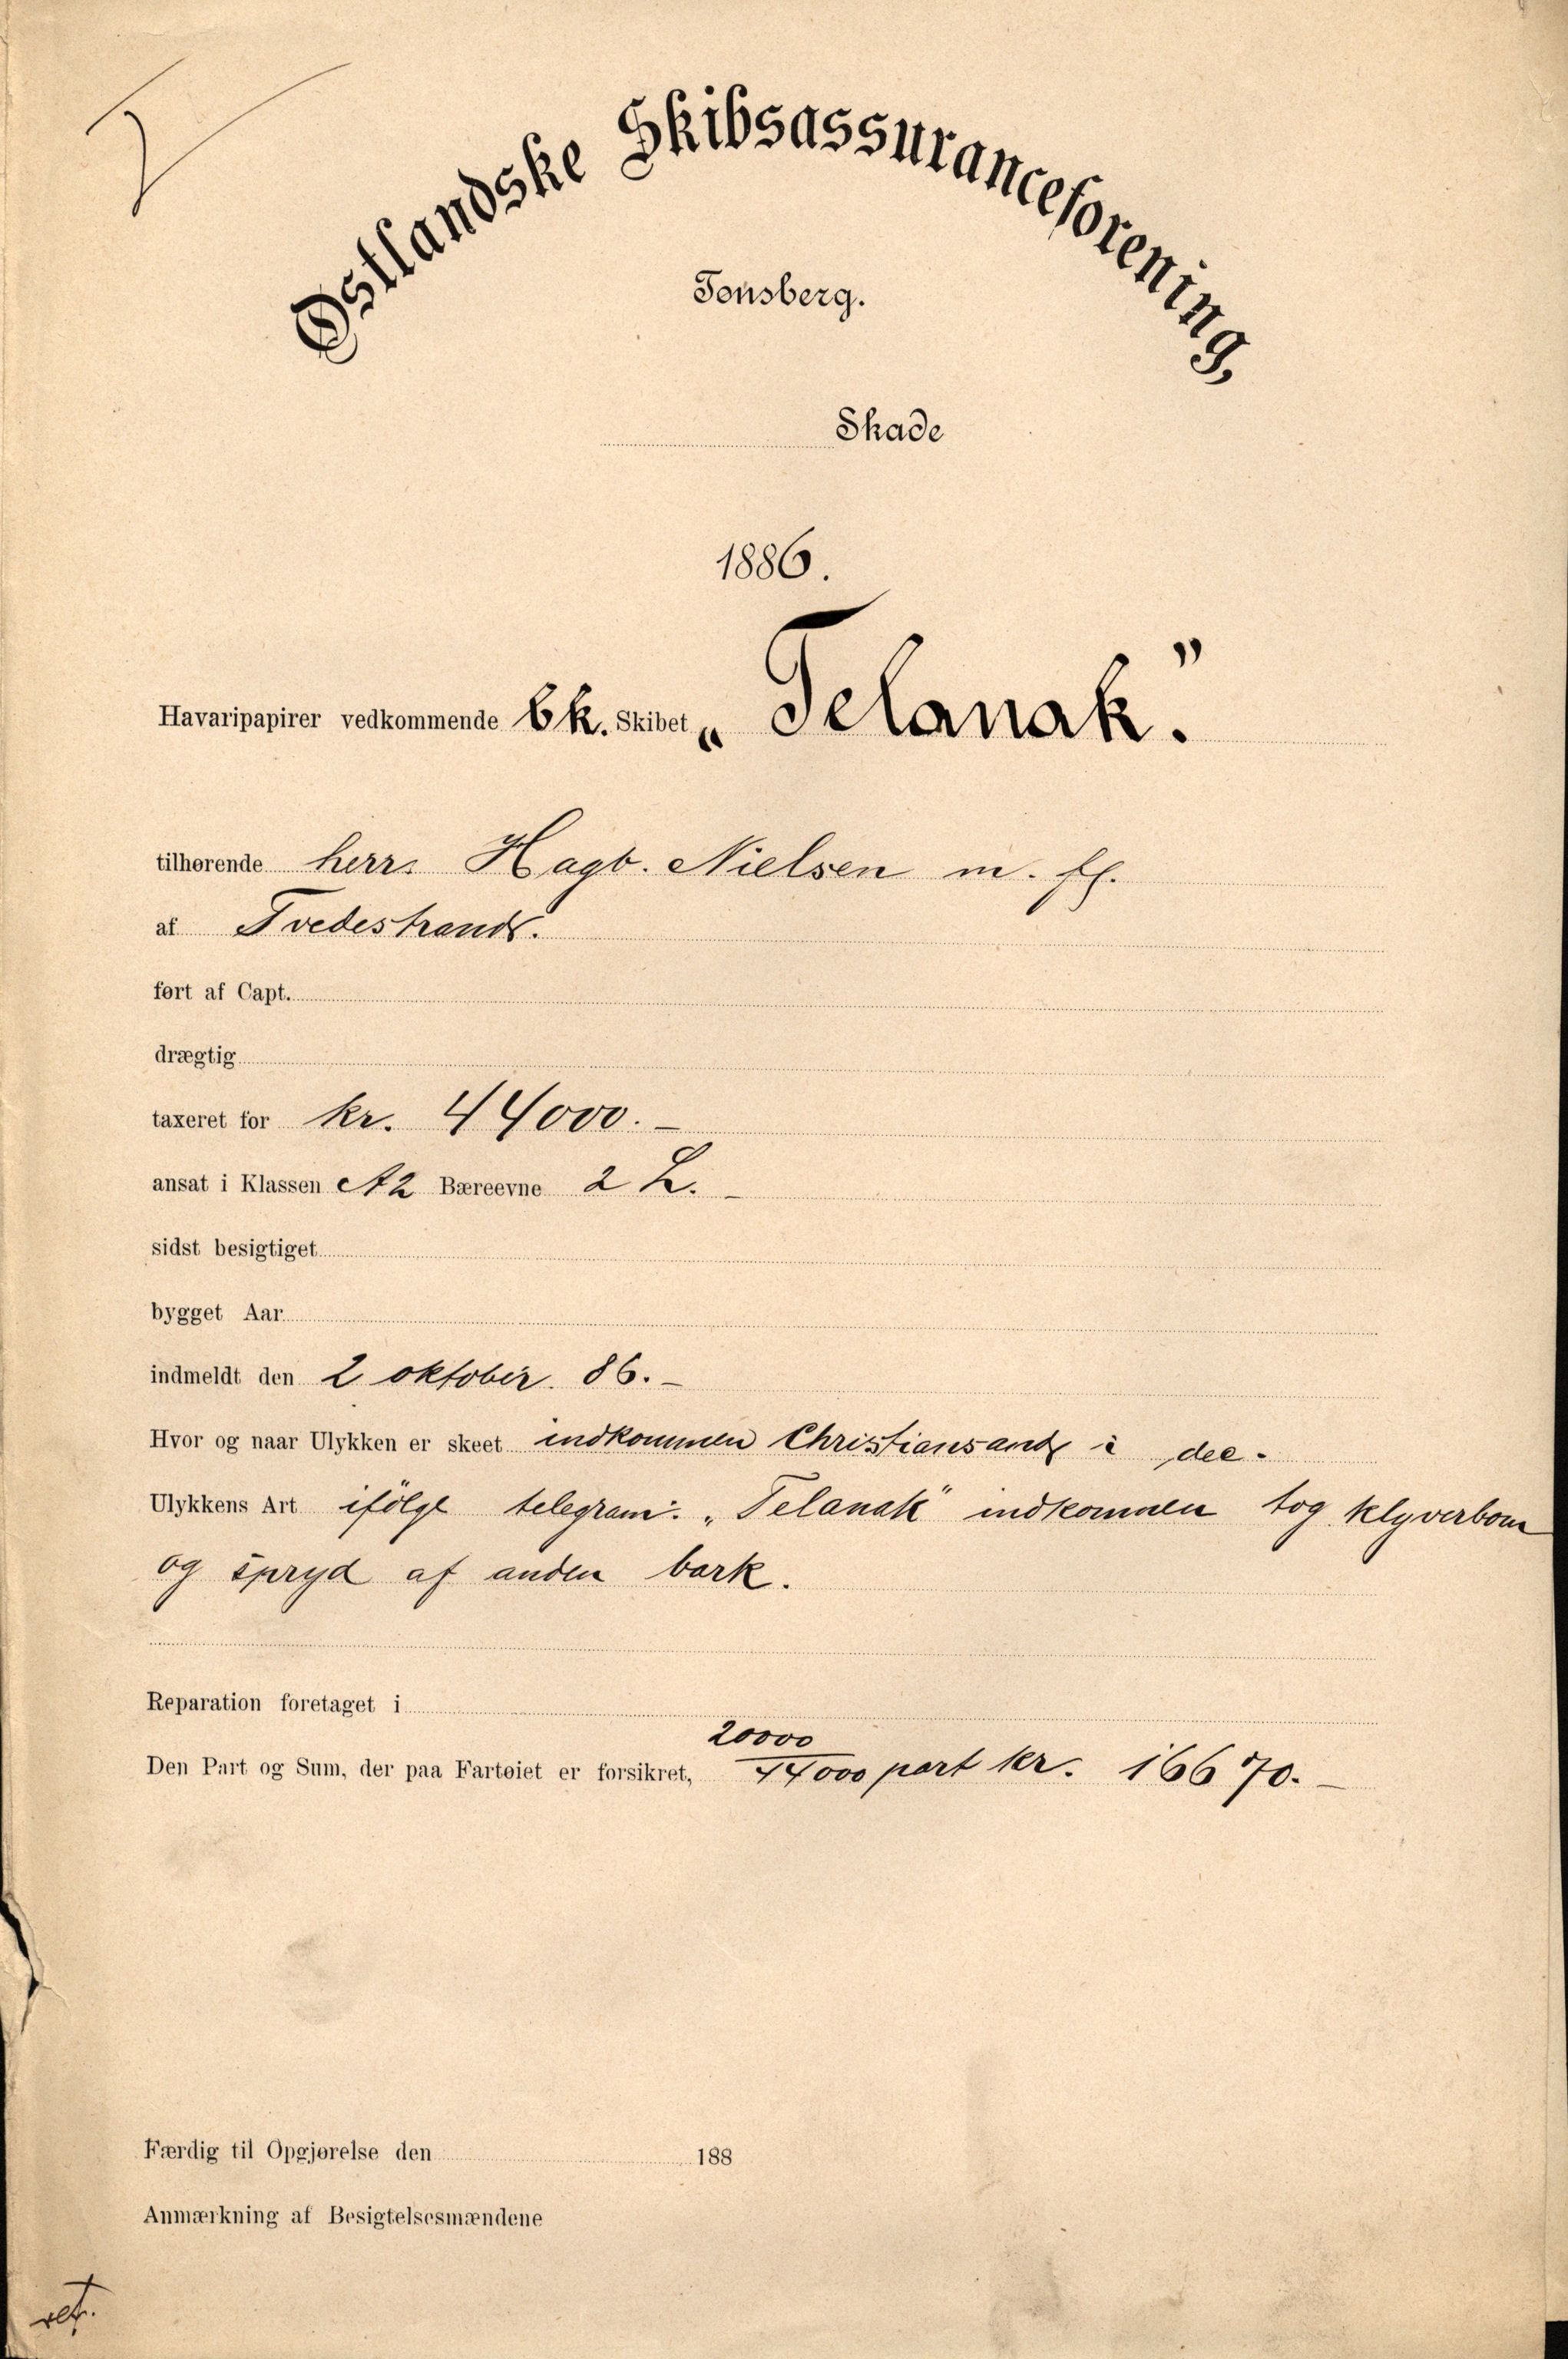 Østlandske Skibsassuranceforening,
Tønsberg.
Skade
1886.
Havaripapirer vedkommende Bk. Skibet „Telanak."
tilhørende herr. Hagb. Nielsen m. fl.
af Tvedestrand.
ført af Capt.
drægtig
taxeret for kr. 44000.-
ansat i Klassen A2 Bæreevne 2 L.-
sidst besigtiget
bygget Aar
indmeldt den 2 oktober. 86.-
Hvor og naar Ulykken er skeet indkommen Christiansand i
Ulykkens Art ifölge telegram: „Telanak" indkommen tog klyverbom
og spryd af anden bark.
Reparation foretaget i
20000
Den Part og Sum, der paa Fartøiet er forsikret, 44000 part kr. 16670.-
Færdig til Opgjørelse den 188
Anmærkning af Besigtelsesmændene